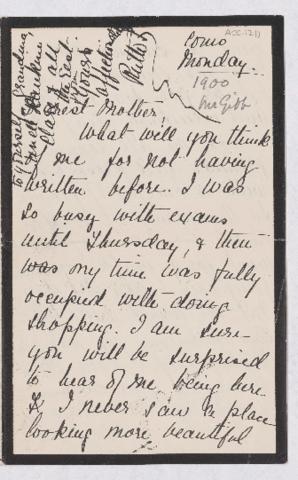 ACC.1211
Como
Monday.
1900
McGibb
Dearest Mother,
What will you think
of me for not having
written before. I was
so busy with exams
until Thursday, & then
was my time was fully
occupied with doing
shopping. I am sure
you will be surprised
to hear of me being here
& I never saw a place
looking more beautiful
to yourself, Grandma,
Aunt
Clara & all
the rest.
from
Yours
affectionately